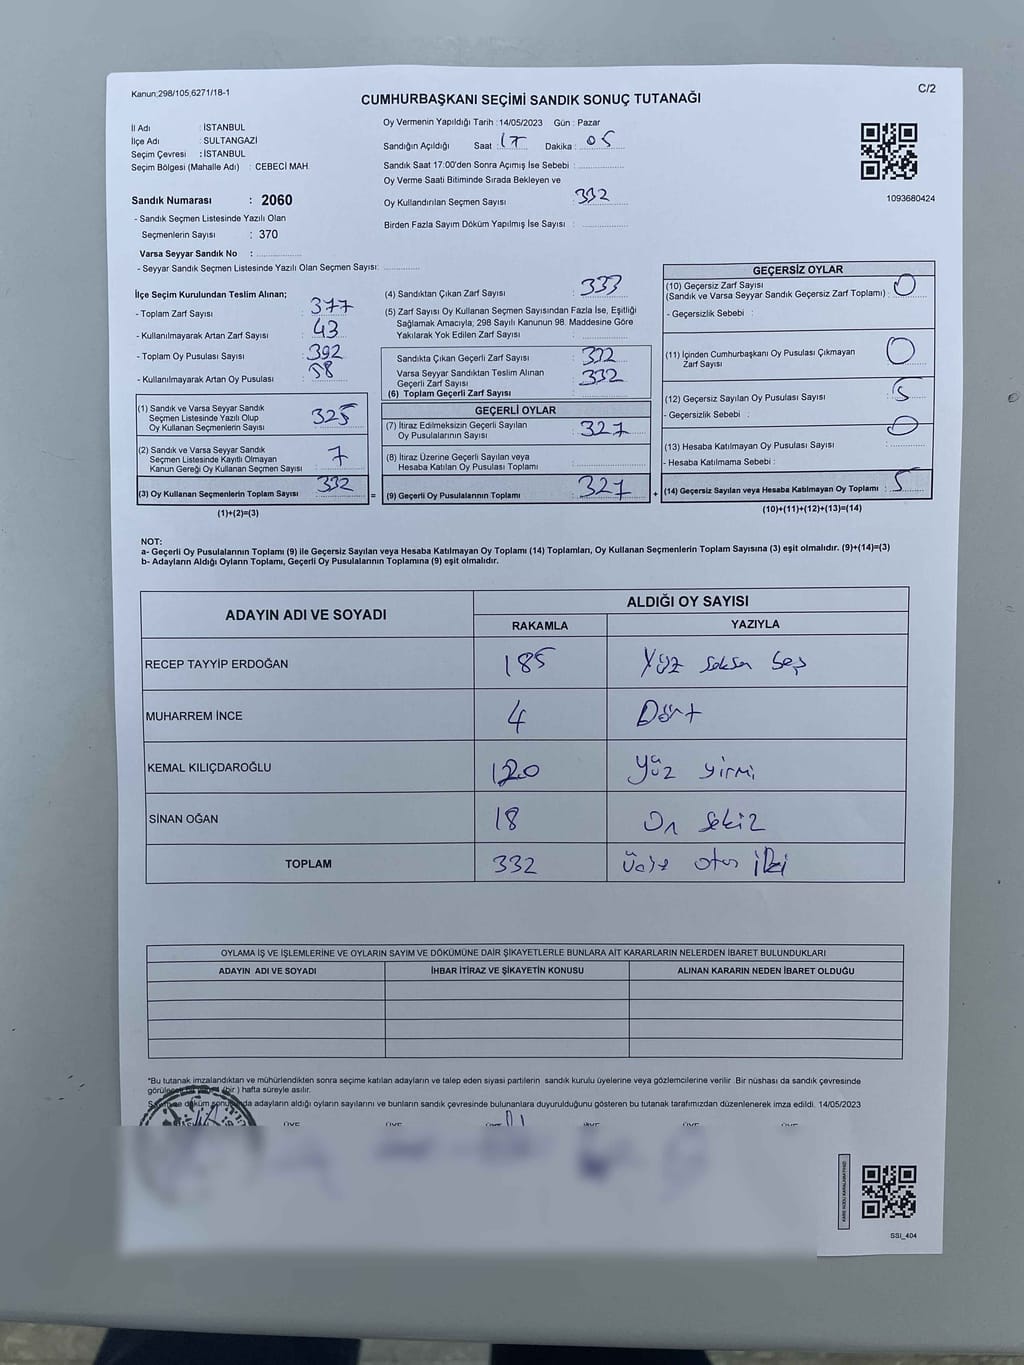 Kanun;298/105,6271/18-1
C/2
CUMHURBAŞKANI SEÇİMİ SANDIK SONUÇ TUTANAĞI
İl Adı : İSTANBUL
İlçe Adı : SULTANGAZİ
Seçim Çevresi : İSTANBUL
Seçim Bölgesi (Mahalle Adı) : CEBECİ MAH.
Sandık Numarası : 2060
- Sandık Seçmen Listesinde Yazılı Olan
Seçmenlerin Sayısı : 370
Varsa Seyyar Sandık No :
- Seyyar Sandık Seçmen Listesinde Yazılı Olan Seçmen Sayısı:
Oy Vermenin Yapıldığı Tarih :14/05/2023 Gün : Pazar
Sandığın Açıldığı Saat : 17 Dakika : 05
Sandık Saat 17:00'den Sonra Açımış İse Sebebi :
Oy Verme Saati Bitiminde Sırada Bekleyen ve
Oy Kullandırılan Seçmen Sayısı : 332
Birden Fazla Sayım Döküm Yapılmış İse Sayısı :
1093680424
İlçe Seçim Kurulundan Teslim Alınan;
- Toplam Zarf Sayısı : 377
- Kullanılmayarak Artan Zarf Sayısı : 43
- Toplam Oy Pusulası Sayısı : 392
- Kullanılmayarak Artan Oy Pusulası : 58
(1) Sandık ve Varsa Seyyar Sandık
Seçmen Listesinde Yazılı Olup
Oy Kullanan Seçmenlerin Sayısı : 325
(2) Sandık ve Varsa Seyyar Sandık
Seçmen Listesinde Kayıtlı Olmayan
Kanun Gereği Oy Kullanan Seçmen Sayısı : 7
(3) Oy Kullanan Seçmenlerin Toplam Sayısı : 332
(1)+(2)=(3)
=
(4) Sandıktan Çıkan Zarf Sayısı : 333
(5) Zarf Sayısı Oy Kullanan Seçmen Sayısından Fazla İse, Eşitliği
Sağlamak Amacıyla; 298 Sayılı Kanunun 98. Maddesine Göre
Yakılarak Yok Edilen Zarf Sayısı :
Sandıkta Çıkan Geçerli Zarf Sayısı : 332
Varsa Seyyar Sandıktan Teslim Alınan
Geçerli Zarf Sayısı : 332
(6) Toplam Geçerli Zarf Sayısı
GEÇERLİ OYLAR
(7) İtiraz Edilmeksizin Geçerli Sayılan
Oy Pusulalarının Sayısı : 327
(8) İtiraz Üzerine Geçerli Sayılan veya
Hesaba Katılan Oy Pusulası Toplamı :
(9) Geçerli Oy Pusulalarının Toplamı : 327
+
GEÇERSİZ OYLAR
(10) Geçersiz Zarf Sayısı
(Sandık ve Varsa Seyyar Sandık Geçersiz Zarf Toplamı) : 0
- Geçersizlik Sebebi :
(11) İçinden Cumhurbaşkanı Oy Pusulası Çıkmayan
Zarf Sayısı : 0
(12) Geçersiz Sayılan Oy Pusulası Sayısı : 5
- Geçersizlik Sebebi :
(13) Hesaba Katılmayan Oy Pusulası Sayısı : 0
- Hesaba Katılmama Sebebi :
(14) Geçersiz Sayılan veya Hesaba Katılmayan Oy Toplamı : 5
(10)+(11)+(12)+(13)=(14)
NOT:
a- Geçerli Oy Pusulalarının Toplamı (9) ile Geçersiz Sayılan veya Hesaba Katılmayan Oy Toplamı (14) Toplamları, Oy Kullanan Seçmenlerin Toplam Sayısına (3) eşit olmalıdır. (9)+(14)=(3)
b- Adayların Aldığı Oyların Toplamı, Geçerli Oy Pusulalarının Toplamına (9) eşit olmalıdır.
ADAYIN ADI VE SOYADI
ALDIĞI OY SAYISI
RAKAMLA YAZIYLA
RECEP TAYYİP ERDOĞAN 185 Yüz seksen beş
MUHARREM İNCE 4 Dört
KEMAL KILIÇDAROĞLU 120 Yüz yirmi
SİNAN OĞAN 18 On sekiz
TOPLAM 332 otuz iki
OYLAMA İŞ VE İŞLEMLERİNE VE OYLARIN SAYIM VE DÖKÜMÜNE DAİR ŞİKAYETLERLE BUNLARA AİT KARARLARIN NELERDEN İBARET BULUNDUKLARI
ADAYIN ADI VE SOYADI İHBAR İTİRAZ VE ŞİKAYETİN KONUSU ALINAN KARARIN NEDEN İBARET OLDUĞU
*Bu tutanak imzalandıktan ve mühürlendikten sonra seçime katılan adayların ve talep eden siyasi partilerin sandık kurulu üyelerine veya gözlemcilerine verilir .Bir nüshası da sandık çevresinde
(bir ) hafta süreyle asılır.
adayların aldığı oyların sayılarını ve bunların sandık çevresinde bulunanlara duyurulduğunu gösteren bu tutanak tarafımızdan düzenlenerek imza edildi. 14/05/2023
SSI_404